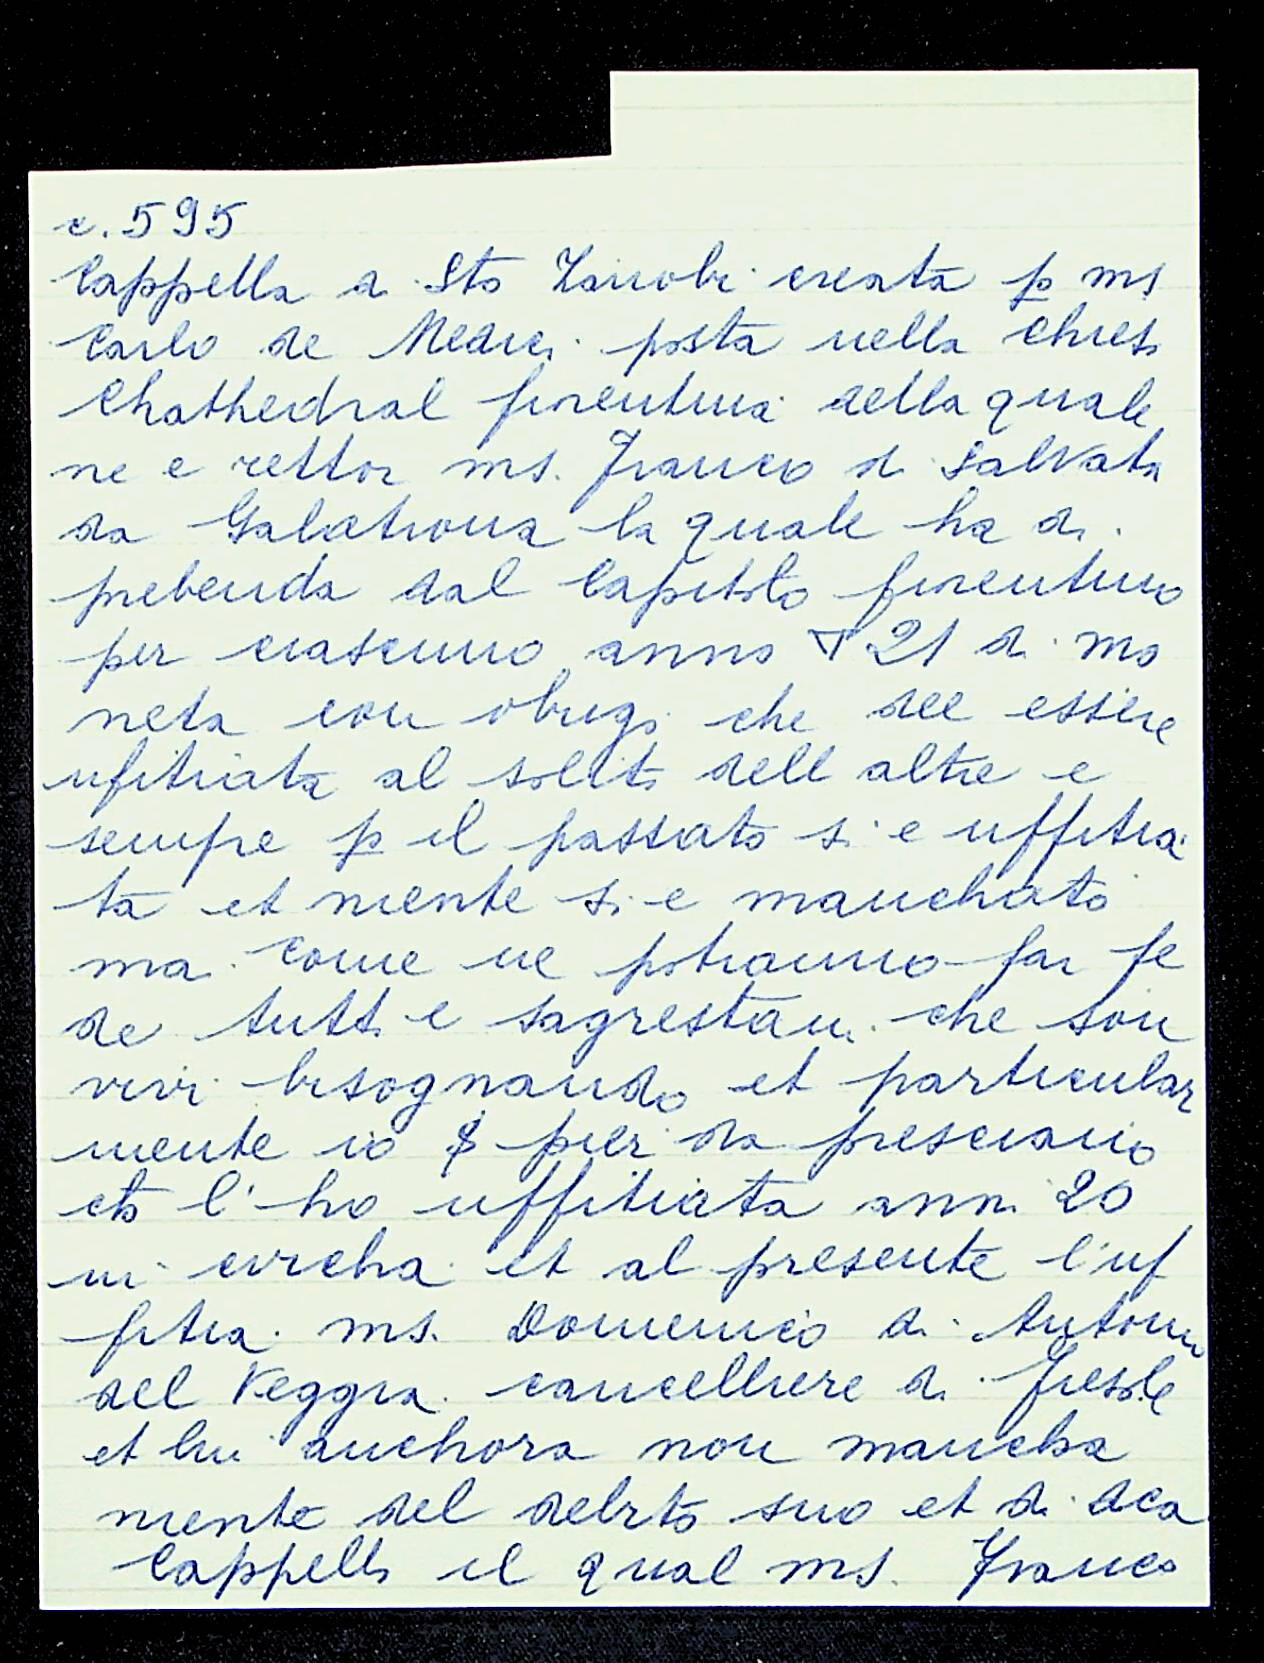 c. 595
Cappella di Sto Zanobi creata p ms
Carlo de Medici posta nella chies
Chathedral fiorentina della quale
ne e rettor ms. Franco di Salvato
da Galatrona la quale ha di
prebenda dal Capitolo fiorentino
per ciascuno anno ∇ 21 di mo
neta con obrigo che dee essere
ufitiata al solito dell altre e
sempre p il passato si e uffitia
ta et niente si e manchato
ma come ne potranno far fe
de tutti e sagrestani che son
vivi bisognando et particular
mente io pier da
l'ho uffitiata anni 20
in circha et al presente l'uf
fitia ms. Domenico di Antonio
del Veggia cancelliere di Fiesole
et lui anchora non mancha
niente del debito suo et di dca
Cappella il qual ms. Franco